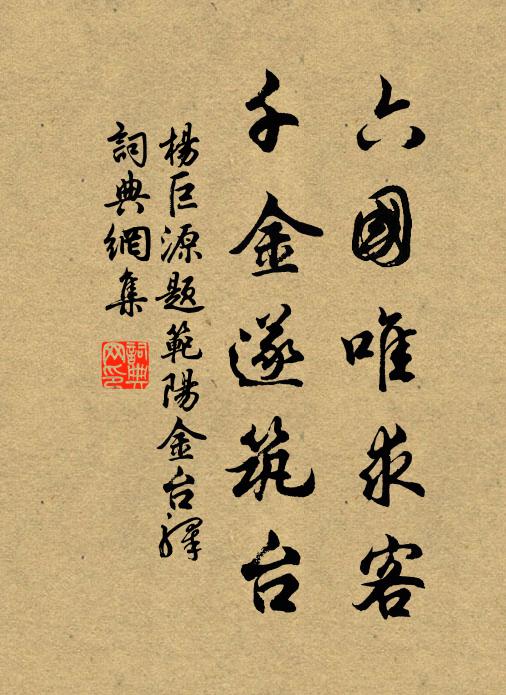 六國唯求客
千金遂筑台
楊巨源題範陽金台驛
詞典網集
詞典
网印